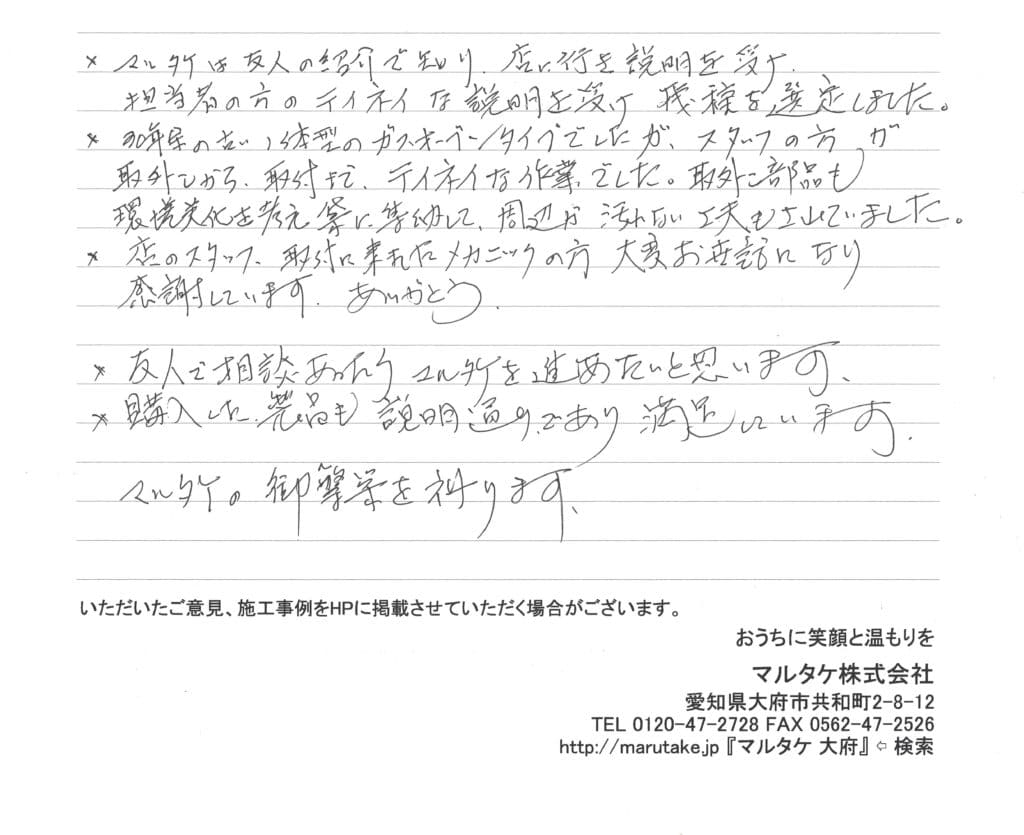 * マルタケは友人の紹介で知り、店に行き説明を受け、
担当者の方のテイネイな説明を受け 機種を選定しました。
* 30年余の古い1体型のガスオーブンタイプでしたが、スタッフの方が
取外しから、取付まで、テイネイな作業でした。取外し部品も
環境美化を考え 袋に 収納して、周辺が汚れない工夫もされていました。
* 店のスタッフ、取付に来れたメカニックの方 大変お世話になり
感謝しています。ありがとう。
* 友人で相談あったら マルタケを進めたいと思います。
* 購入した製品も 説明通りであり 満足しています。
マルタケの 御繁栄を祈ります。
いただいたご意見、施工事例をHPに掲載させていただく場合がございます。
おうちに笑顔と温もりを
マルタケ株式会社
愛知県大府市共和町2-8-12
TEL 0120-47-2728 FAX 0562-47-2526
http://marutake.jp『マルタケ 大府』⇦ 検索